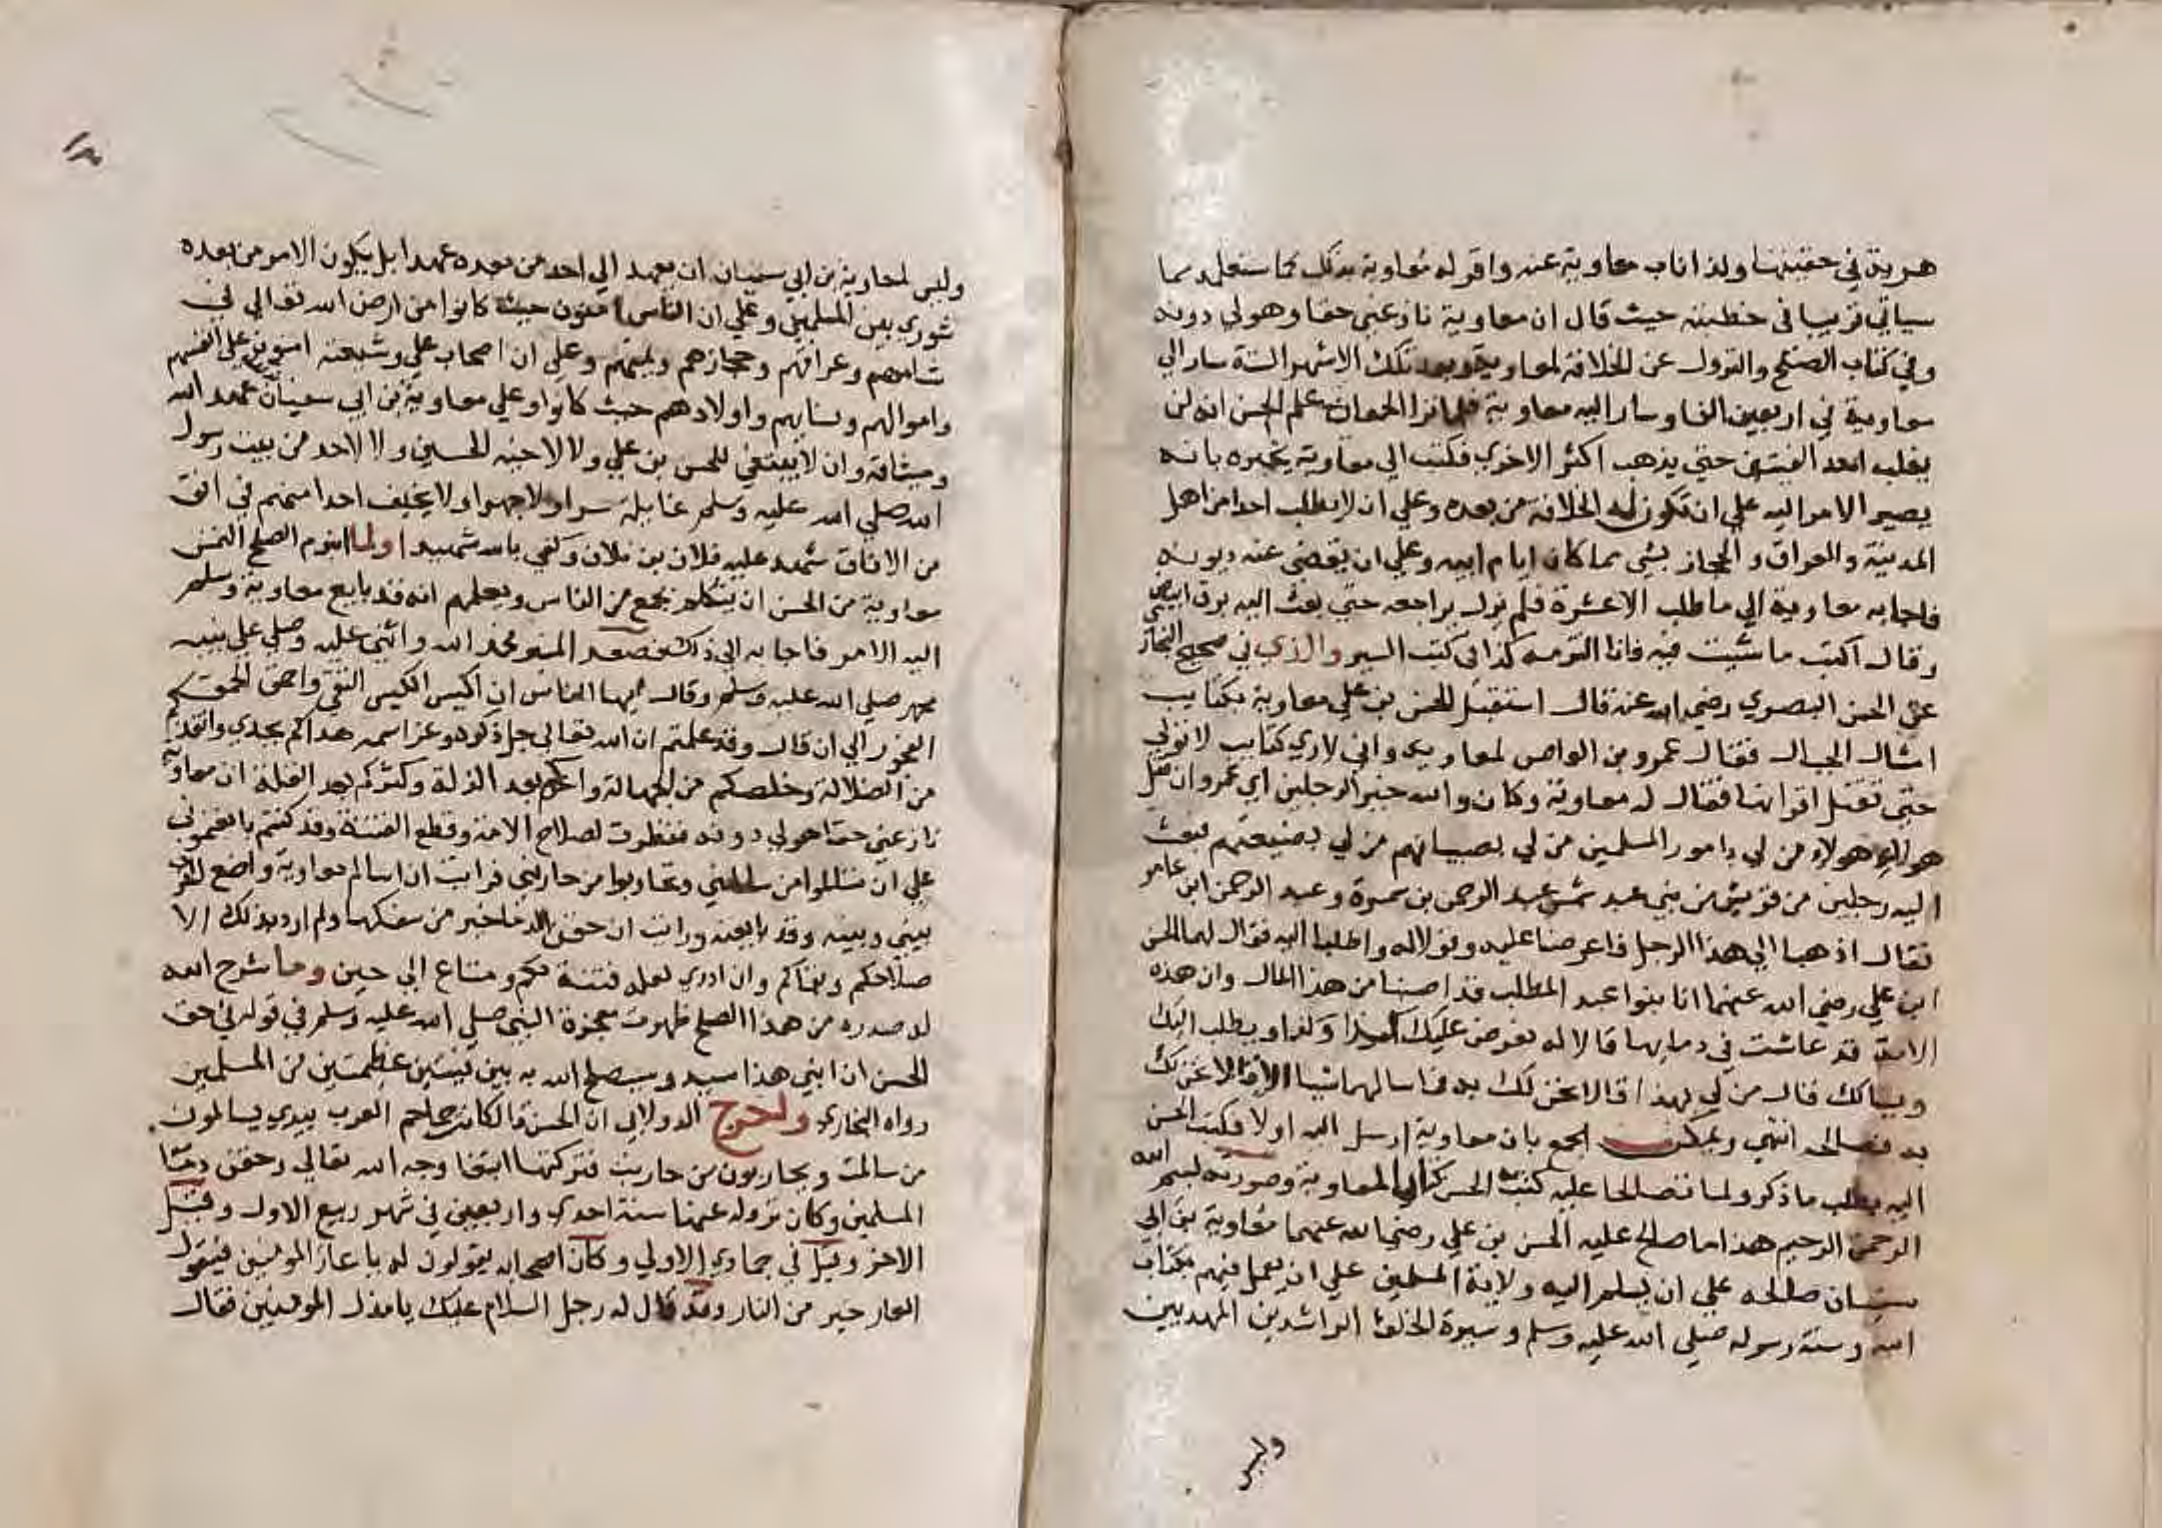 هريرة في حقيتها ولذا ناب معاوية عنه واقر له معاوية بذلك كما ستعلم مما
سياتي قريبا في خطبته حيث قال ان معاوية نازعني حقا وهو لي دونه
وفي كتاب الصلح والنزول عن الخلافة لمعاوية وبعد تلك الاشهر الستة سار الي
معاوية في اربعين الفا وسار اليه معاوية فلما تراا الجمعان علم الحسن انه لن
يغلب احد الفئتين حتي يذهب اكثر الاخري فكتب الي معاوية يخبره بانه
يصير الامر اليه علي ان تكون له الخلافة من بعده وعلي ان لا يطلب احدا من اهل
المدينة والعراق والحجاز بشي مما كان ايام ابيه وعلي ان يقضي عنه ديونه
فاجابه معاوية الي ما طلب الا عشرة فلم يزل يراجعه حتي بعث اليه برق ابيض
وقال اكتب ما شيت فيه فانا التزمه كذا في كتب السير والذي في صحيح البخاري
عن الحسن البصري رضي الله عنه قال استقبل الحسن بن علي معاوية بكتايب
امثال الجبال فقال عمرو بن العاص لمعاوية واني لاري كتايب لا تولي
حتي تقتل اقرانها فقال له معاوية وكان والله خير الرجلين اي عمرو ان قتل
هولاء هولاء من لي بامور المسلمين من لي بصبيانهم من لي بضيعتهم فبعث
اليه رجلين من قريش من بني عبد شمس عبد الرحمن بن سمرة وعبد الرحمن ابن عامر
فقال اذهبا الي هذا الرجل فاعرضا عليه وقولا له واطلبا اليه فقال لهما الحسن
ابن علي رضي الله عنهما انا بنوا عبد المطلب قد اصبنا من هذا المال وان هذه
الامة قد عاثت في دمايها قالا له يعرض عليك كذا وكذا ويطلب اليك
ويسالك قال من لي بهذا قالا نحن لك به فما سالهما شيا الا قالا نحن لك
به فصالحه انتهي ويمكن الجمع بان معاوية ارسل اليه اولا فكتب الحسن
اليه يطلب ما ذكر ولما تصالحا عليه كتب الحسن كتابا لمعاوية وصورته بسم الله
الرحمن الرحيم هذا ما صالح عليه الحسن بن علي رضي الله عنهما معاوية بن ابي
سفيان صالحه علي ان يسلم اليه ولاية المسلمين علي ان يعمل فيهم بكتاب
الله وسنة رسوله صلي الله عليه وسلم وسيرة الخلفا الراشدين المهديين
وليس
وليس لمعاوية بن ابي سفيان ان يعهد الي احد من بعده عهدا بل يكون الامر من بعده
شوري بين المسلمين وعلي ان الناس امنون حيث كانوا من ارض الله تعالي في
شامهم وعراقهم وحجازهم ويمنهم وعلي ان اصحاب علي وشيعته امنون علي انفسهم
واموالهم ونسايهم واولادهم حيث كانوا وعلي معاوية بن ابي سفيان عهد الله
وميثاقه وان لا يبتغي للحسن بن علي ولا لاخيه الحسين ولا لاحد من بيت رسول
الله صلي الله عليه وسلم غايلة سرا ولا جهرا ولا يخيف احدا منهم في افق
من الافاق شهد عليه فلان بن فلان وكفي بالله شهيدا ولما انبرم الصلح التمس
معاوية من الحسن ان يتكلم بجمع من الناس ويعلمهم انه قد بايع معاوية وسلم
اليه الامر فاجابه الي ذلك فصعد المنبر فحمد الله واثني عليه وصلي علي نبيه
محمد صلي الله عليه وسلم وقال ايها الناس ان اكيس الكيس التقي واحمق الحمق
الفجور الي ان قال وقد علمتم ان الله تعالي جل ذكره وعز اسمه هداكم بجدي وانقذكم
من الضلالة وخلصكم من الجهالة واعزكم بعد الذلة وكثركم بعد القلة ان معاوية
نازعني حقا هو لي دونه فنظرت لصلاح الامة وقطع الفتنة وقد كنتم بايعتموني
علي ان تسالموا من سالمني وتحاربوا من حاربني فرايت ان اسالم معاوية واضع الحرب
بيني وبينه وقد بايعته ورايت ان حقن الدما خير من سفكها ولم ارد بذلك الا
صلاحكم وبقاكم وان ادري لعله فتنة لكم ومتاع الي حين ومما شرح الله
له صدره من هذا الصلح ظهرت معجزة النبي صلي الله عليه وسلم في قوله في حق
الحسن ان ابني هذا سيد وسيصلح الله به بين فئتين عظيمتين من المسلمين
رواه البخاري واخرج الدولابي ان الحسن قال كانت جماجم العرب بيدي يسالمون
من سالمت ويحاربون من حاربت فتركتها ابتغا وجه الله تعالي وحقن دما
المسلمين وكان نزوله عنها سنة احدي واربعين في شهر ربيع الاول وقيل
الاخر وقيل في جمادي الاولي وكان اصحابه يقولون له يا عار المومنين فيقول
العار خير من النار وقد قال له رجل السلام عليك يا مذل المومنين فقال